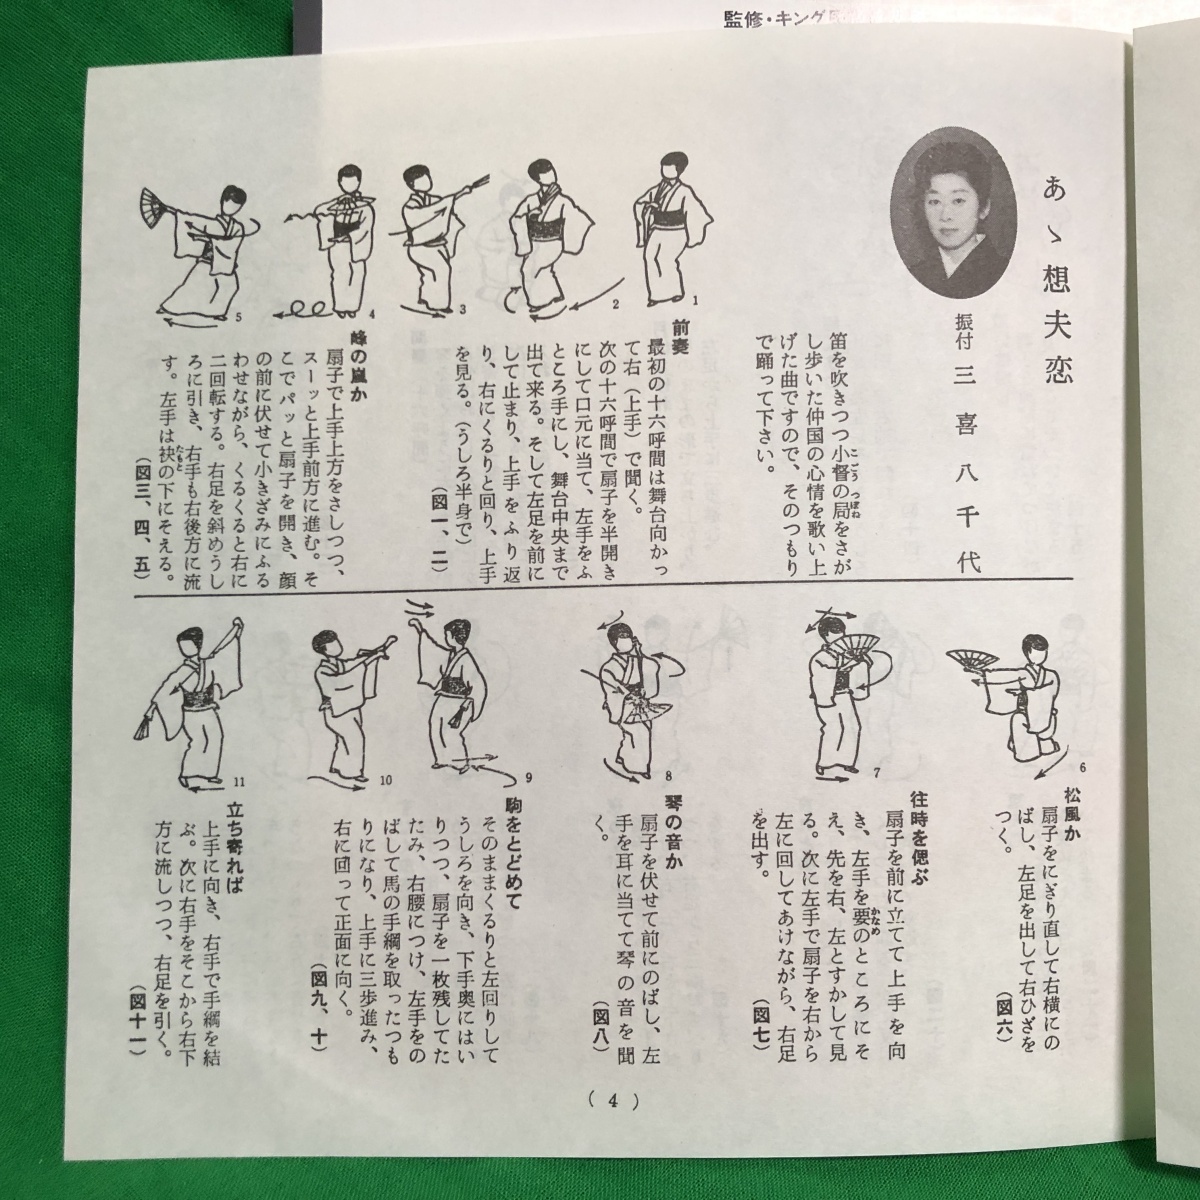 監修・キング
あゝ想夫恋
振付 三喜八千代
笛を吹きつつ小督の局をさが
し歩いた仲国の心情を歌い上
げた曲ですので、そのつもり
で踊って下さい。
前奏
最初の十六呼間は舞台向かっ
て右（上手）で聞く。
次の十六呼間で扇子を半開き
にして口元に当て、左手をふ
ところ手にし、舞台中央まで
出て来る。そして左足を前に
して止まり、上手をふり返
り、右にくるりと回り、上手
を見る。（うしろ半身で）
（図一、二）
峰の嵐か
扇子で上手上方をさしつつ、
スーッと上手前方に進む。そ
こでパッと扇子を開き、顔
の前に伏せて小きざみにふる
わせながら、くるくると右に
二回転する。右足を斜めうし
ろに引き、右手も右後方に流
す。左手は袂の下にそえる。
（図三、四、五）
1
2
3
4
5
松風か
扇子をにぎり直して右横にの
ばし、左足を出して右ひざを
つく。
（図六）
往時を偲ぶ
扇子を前に立てて上手を向
き、左手を要のところにそ
え、先を右、左とすかして見
る。次に左手で扇子を右から
左に回してあけながら、右足
を出す。
（図七）
琴の音か
扇子を伏せて前にのばし、左
手を耳に当てて琴の音を聞
く。
（図八）
駒をとどめて
そのままくるりと左回りして
うしろを向き、下手奥にはい
りつつ、扇子を一枚残してた
たみ、右腰につけ、左手をの
ばして馬の手綱を取ったつも
りになり、上手に三歩進み、
右に回って正面に向く。
（図九、十）
立ち寄れば
上手に向き、右手で手綱を結
ぶ。次に右手をそこから右下
方に流しつつ、右足を引く。
（図十一）
6
7
8
9
10
11
（4）